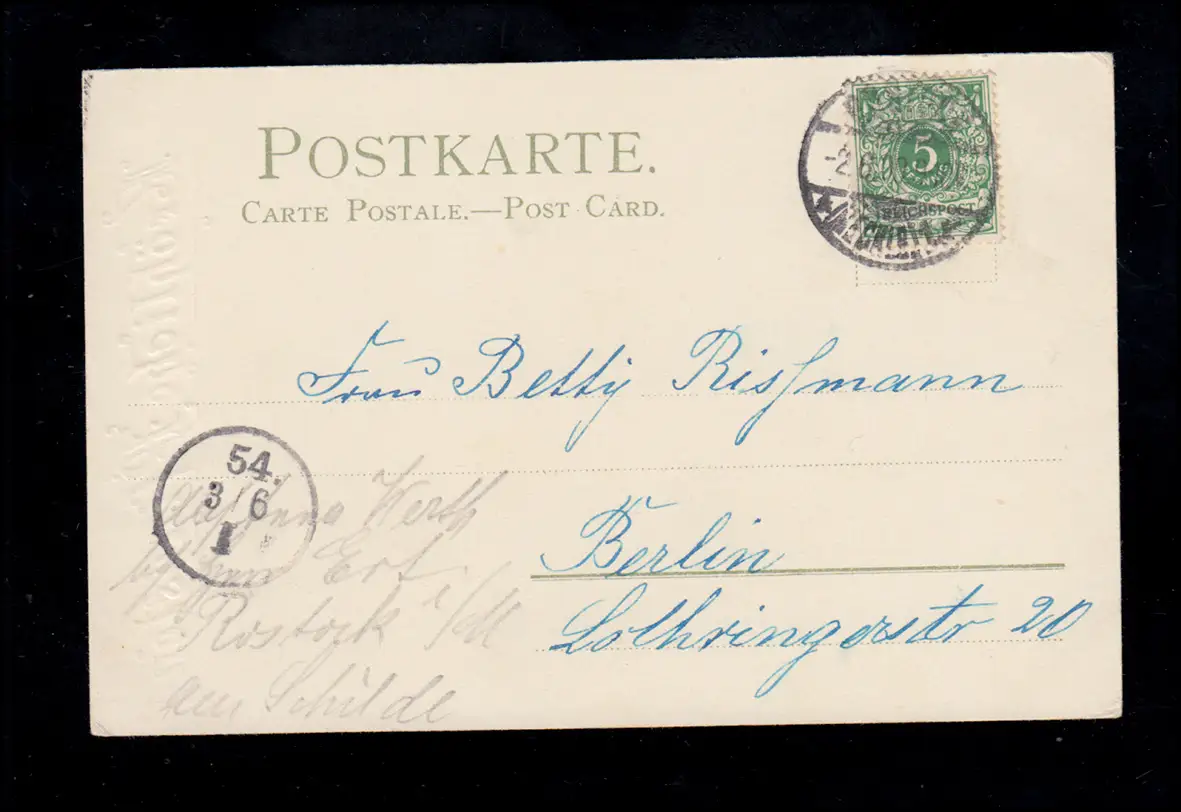 POSTKARTE.
CARTE POSTALE.—POST CARD.
5
PFENNIG
REICHSPOST
Frau Betty Rissmann
Berlin
Lothringerstr 20
54.
3/6
1
Anna Werth
Rostock i/M
am Schilde